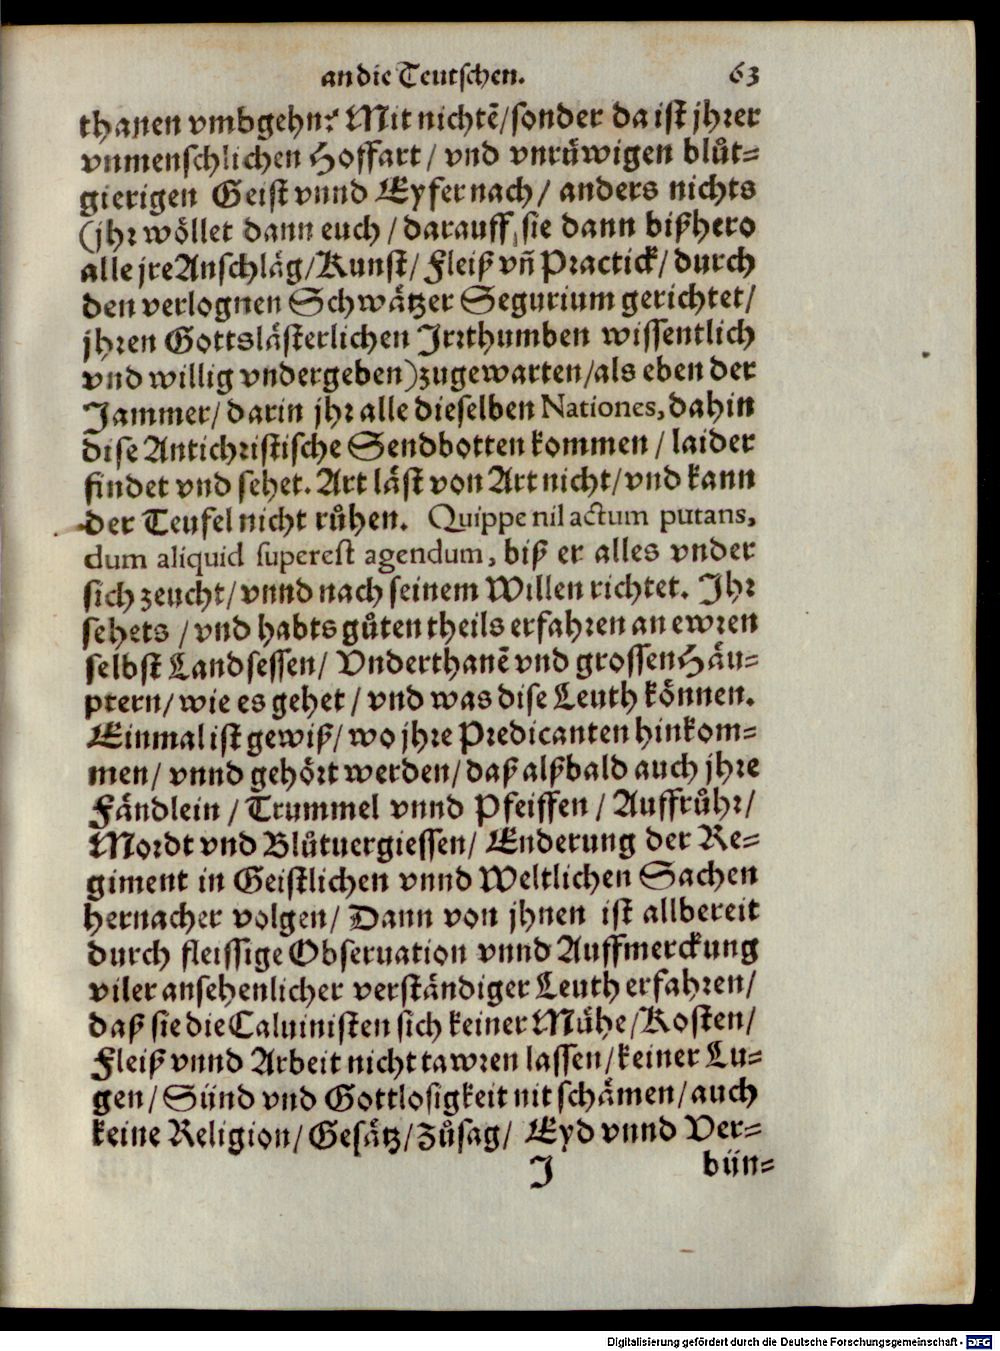 an die Teutschen. 63
thanen vmbgehn? Mit nichtē/sonder da ist jhrer
vnmenschlichen Hoffart/ vnd vnrüwigen blůt=
gierigen Geist vnnd Eyfer nach/ anders nichts
(jhr wöllet dann euch/ darauff, sie dann bißhero
alle jre Anschläg/Kunst/ Fleiß vñ Practick/ durch
den verlognen Schwätzer Segurium gerichtet/
jhren Gottslästerlichen Irrthumben wissentlich
vnd willig vndergeben) zugewarten/als eben der
Jammer/ darin jhr alle dieselben Nationes, dahin
dise Antichristische Sendbotten kommen / laider
findet vnd sehet. Art läst von Art nicht/vnd kann
der Teufel nicht růhen. Quippe nil actum putans,
dum aliquid superest agendum, biß er alles vnder
sich zeucht/ vnnd nach seinem Willen richtet. Ihr
sehets /vnd habts gůten theils erfahren an ewren
selbst Landsessen/ Vnderthanē vnd grossen Häu=
ptern/ wie es gehet / vnd was dise Leuth können.
Einmal ist gewiß/ wo jhre Predicanten hinkom=
men/ vnnd gehört werden/ daß alßbald auch jhre
Fändlein / Trummel vnnd Pfeiffen / Auffrůhr/
Mordt vnd Blůtuergiessen/ Enderung der Re=
giment in Geistlichen vnnd Weltlichen Sachen
hernacher volgen/ Dann von jhnen ist allbereit
durch fleissige Obseruation vnnd Auffmerckung
viler ansehenlicher verständiger Leuth erfahren/
daß sie die Caluinisten sich keiner Mühe/Kosten/
Fleiß vnnd Arbeit nicht tawren lassen/keiner Lu=
gen/ Sünd vnd Gottlosigkeit nit schämen/ auch
keine Religion/ Gesätz/ Zůsag/ Eyd vnnd Ver=
J bün=
Digitalisierung gefördert durch die Deutsche Forschungsgemeinschaft - DFG